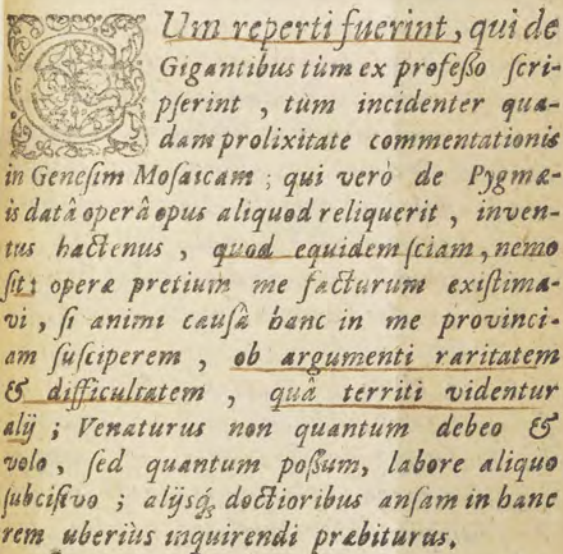 CUm reperti fuerint, qui de
Gigantibus tùm ex profeſſo ſcri-
pſerint , tùm incidenter qua-
dam prolixitate commentationis
in Geneſim Moſaicam ; qui verò de Pygmæ-
is datâ operâ opus aliquod reliquerit , inven-
tus hactenus , quod equidem ſciam, nemo
ſit: operæ pretium me facturum exiſtima-
vi , ſi animi cauſâ hanc in me provinci-
am ſuſciperem , ob argumenti raritatem
& difficultatem , quâ territi videntur
alij ; Venaturus non quantum debeo &
volo , ſed quantum poſſum, labore aliquo
ſubciſivo ; alijsq́; doctioribus anſam in hanc
rem uberiùs inquirendi præbiturus.